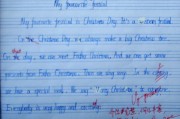 My favourite festival
My favourite festival is Christmas Day. It's a warm festival.
On the Christmas Day, we always make a big Christmas tree.
On the day, we can meet Father Christmas. And we can get some
presents from Father Christmas. Then we sing songs. In the
we have a special meal. We say " Christmas" to
Everybody is very happy and